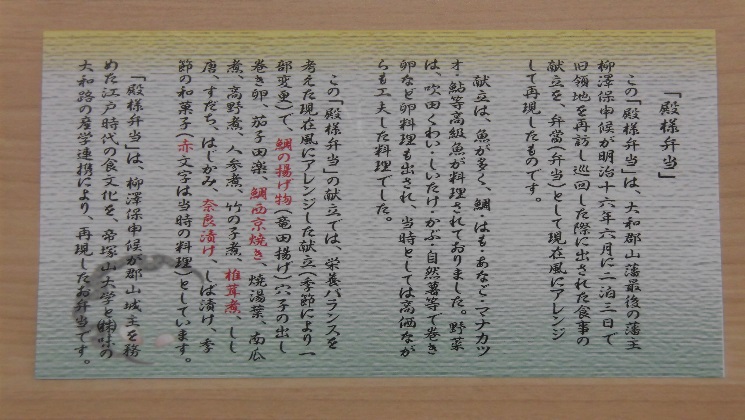 「殿様弁当」
この「殿様弁当」は、大和郡山藩最後の藩主
柳澤保申候が明治十六年六月に二泊三日で
旧領地を再訪し巡回した際に出された食事の
献立を、弁當(弁当)として現在風にアレンジ
して再現したものです。
献立は、魚が多く、鯛・はも・あなど・マナカツ
オ・鮎等高級魚が料理されておりました。野菜
は、吹田くわい・しいたけ・かぶ・自然薯等で巻き
卵など卵料理も出され、当時としては高価なが
らも工夫した料理でした。
この「殿様弁当」の献立では、栄養バランスを
考えた現在風にアレンジした献立(季節により一
部変更)で、鯛の揚げ物(竜田揚げ)穴子の出し
巻き卵、茄子田楽、鯛西京焼き、焼湯葉、南瓜
煮、高野煮、人参煮、竹の子煮、椎茸煮、しし
唐、すだち、はじかみ、奈良漬け、しば漬け、季
節の和菓子(赤文字は当時の料理)としています。
「殿様弁当」は、柳澤保申候が郡山城主を務
めた江戸時代の食文化を、帝塚山大学と の
大和路の産学連携により、再現したお弁当です。